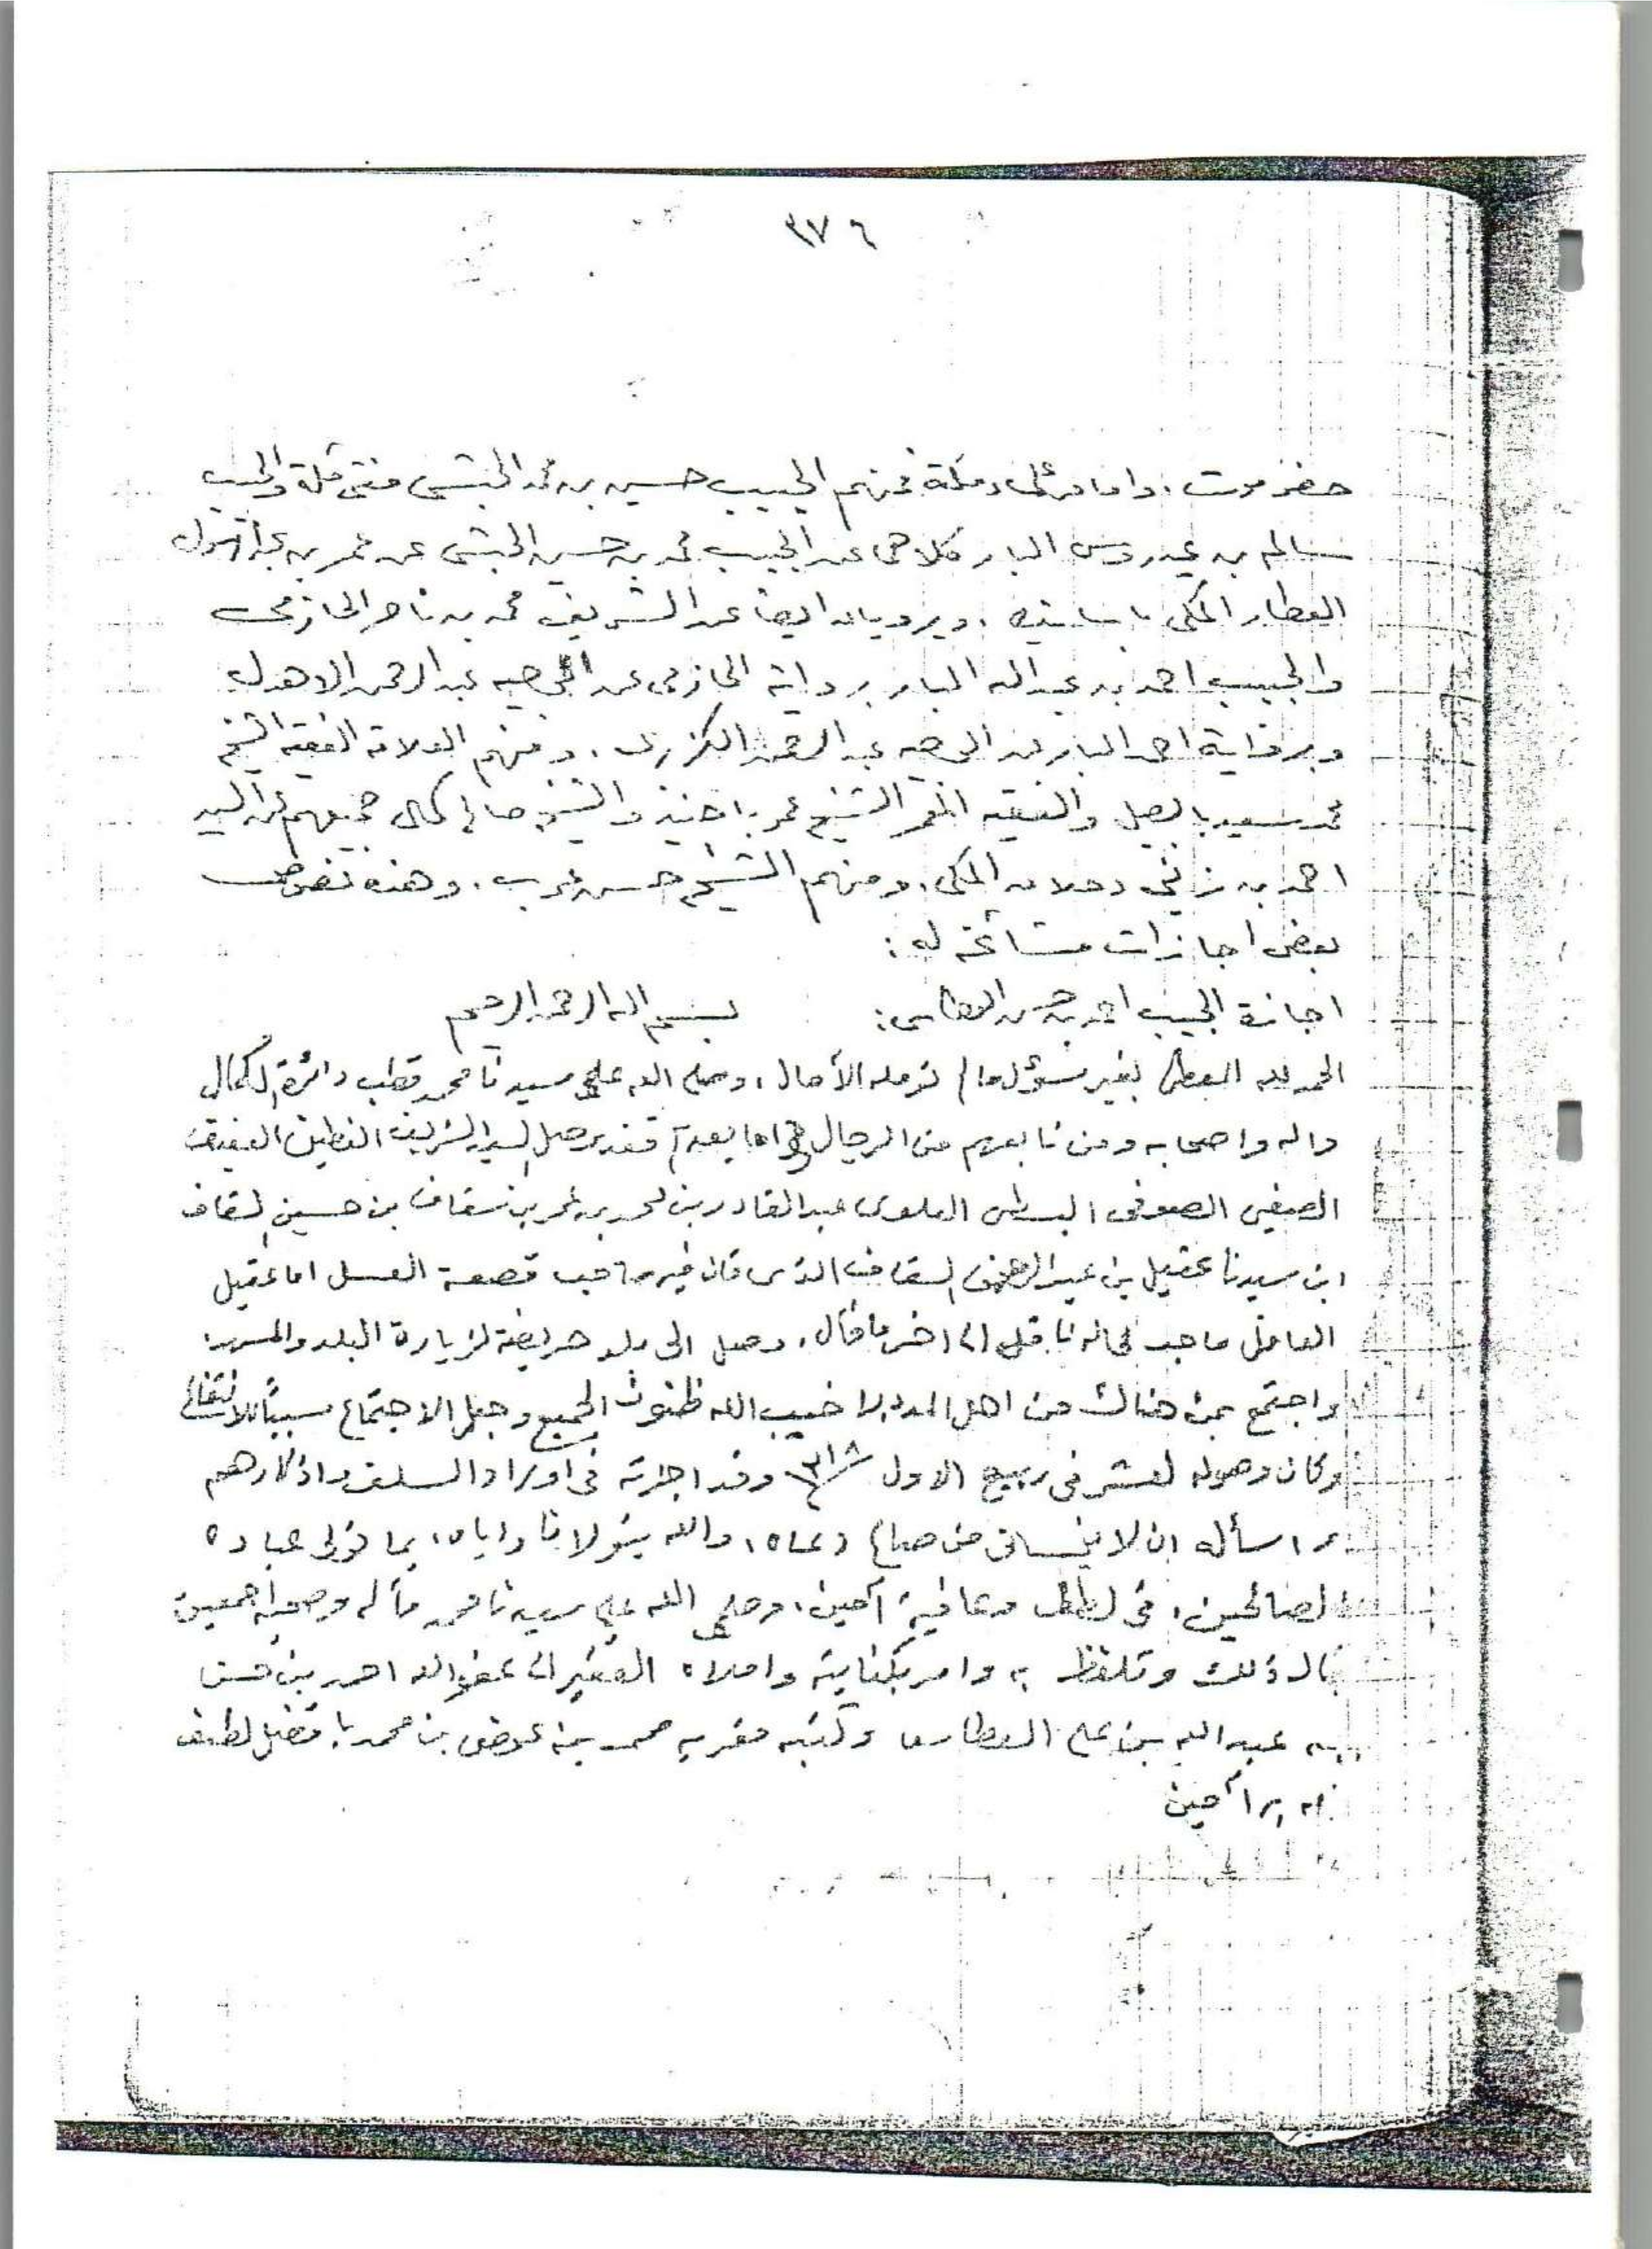 ٣٧٦
حضرموت، واما من علماء مكة فمنهم الحبيب حسين بن محمد الحبشي مفتي مكة والحبيب
سالم بن عيدروس البار كلاهما عن الحبيب محمد بن حسين الحبشي عن عمر بن عبد الرسول
العطار المكي باسانيده، ويرويان ايضا عن الشريف محمد بن ناصر الحازمي
والحبيب احمد بن عبد الله البار برواية الحازمي عن الوجيه عبد الرحمن الاهدل
وبرواية احمد البار عن الوجيه عبد الرحمن الكزبري، ومنهم العلامة الفقيه الشيخ
محمد سعيد بابصيل والفقيه المعمر الشيخ عمر باجنيد والشيخ صالح كمال جميعهم عن السيد
احمد بن زيني دحلان المكي، ومنهم الشيخ حسن عرب، وهذه نصوص
بعض اجازات مشائخه له:
اجازة الحبيب احمد بن حسن العطاس: بسم الله الرحمن الرحيم
الحمد لله المعطي بغير سؤل ما لم تؤمله الآمال، وصلى الله على سيدنا محمد قطب دائرة الكمال
واله واصحابه ومن تابعهم من الرجال اما بعد فقد وصل السيد الشريف الفطين العفيف
الصفي الصوفي العلوي عبد القادر بن احمد بن عمر بن سقاف بن حسين السقاف
ابن سيدنا عقيل بن عبد الرحمن السقاف الذي قال فيه صاحب قصعة العسل اما عقيل
العاقل ماجد الى اخر ما قال، وصل الى بلد حريضة لزيارة البلد
واجتمع بمن هناك من اهل المدد لا خيب الله ظنون الجميع وجعل الاجتماع سبباً للانتفاع
وكان وصوله لعشر في ربيع الاول وقد اجزته في اوراد السلف واذكارهم
واسأله ان لا ينساني من صالح دعاه، والله يتولانا واياه، بما تولى عباده
الصالحين، في لطف وعافية آمين، وصلى الله على سيدنا محمد وآله وصحبه اجمعين
قال ذلك وتلفظ به وامر بكتابته واملاه الفقير الى عفو الله احمد بن حسن
بن عبد الله بن علي العطاس وكتبه عوض بن محمد بافضل لطف
الله به آمين